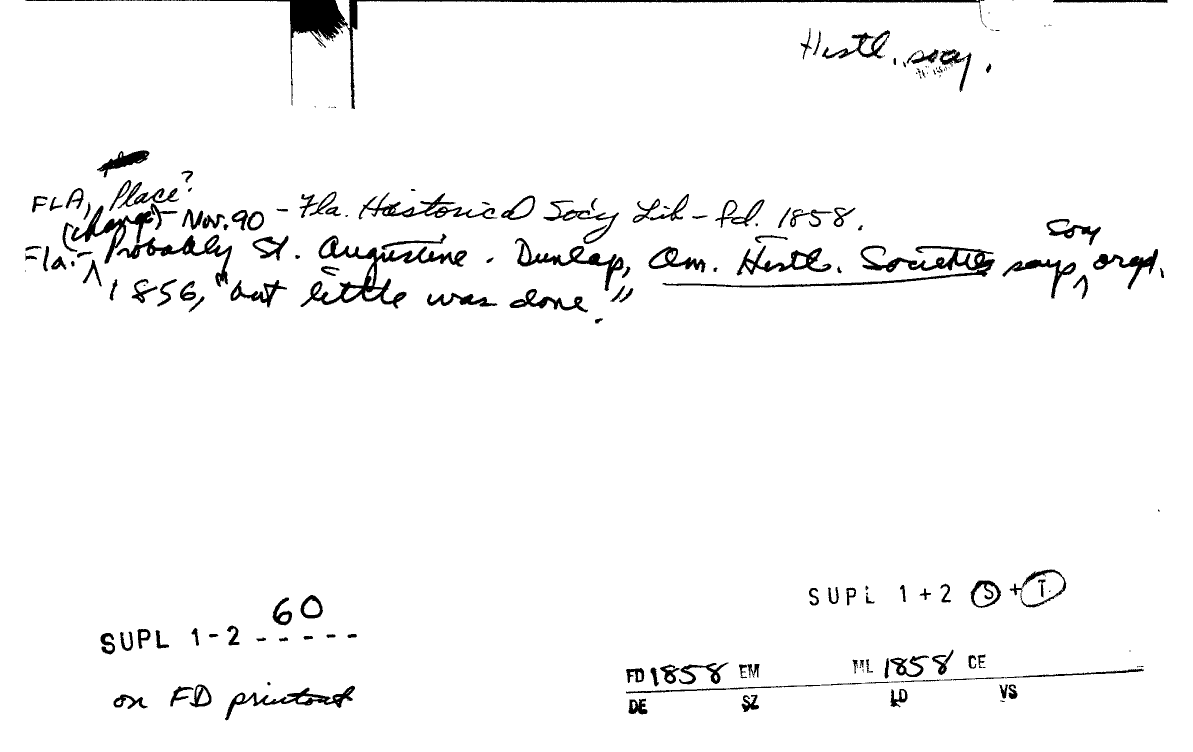 Histl. socy.
FLA, Place?
(change) - Nov. 90 - Fla. Historical Soc'y Lib - fd. 1858.
socy
Fla. - ^ Probably St. Augustine. Dunlap, Am. Histl. Societies says ^ orgd.
1856, "but little was done."
SUPL 1+2 S + T
60
SUPL 1-2 - - - - -
FD 1858 EM ML 1858 CE
on FD printout
DE SZ LD VS